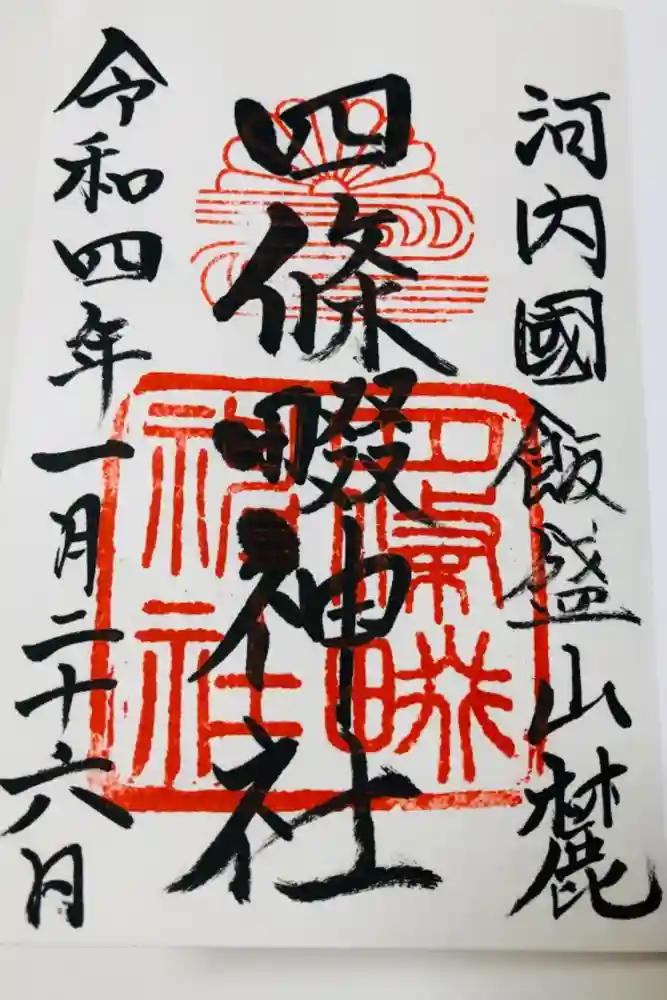 河内國飯盛山麓
四條畷神社
四條畷
神社
令和四年一月二十六月